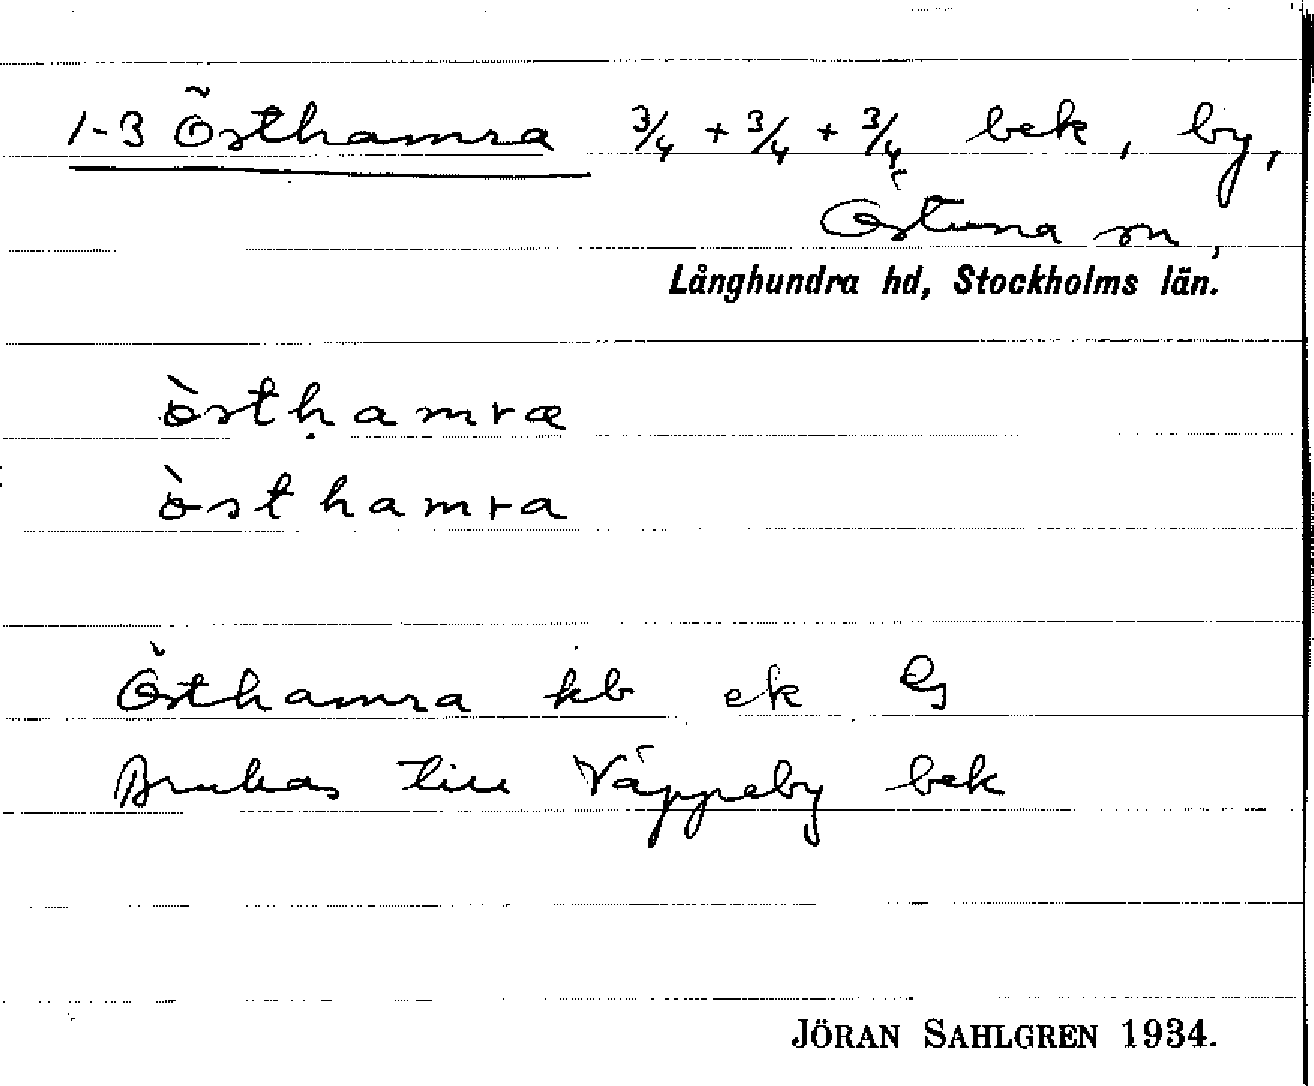 1-3 Östhamra 3/4 + 3/4 + 3/4 bek, by,
Östuna sn,
Långhundra hd, Stockholms län.
òsthamra
òsthamra
Östhamra kb ek
Brukas till Väppeby bek
JÖRAN SAHLGREN 1934.